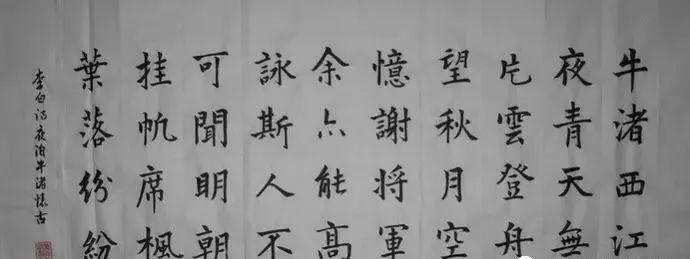 牛渚西江
夜青天無
片雲登舟
望秋月空
憶謝将軍
余亦能高
詠斯人不
可聞明朝
挂帆席楓
葉落紛紛
李白詩夜泊牛渚懷古